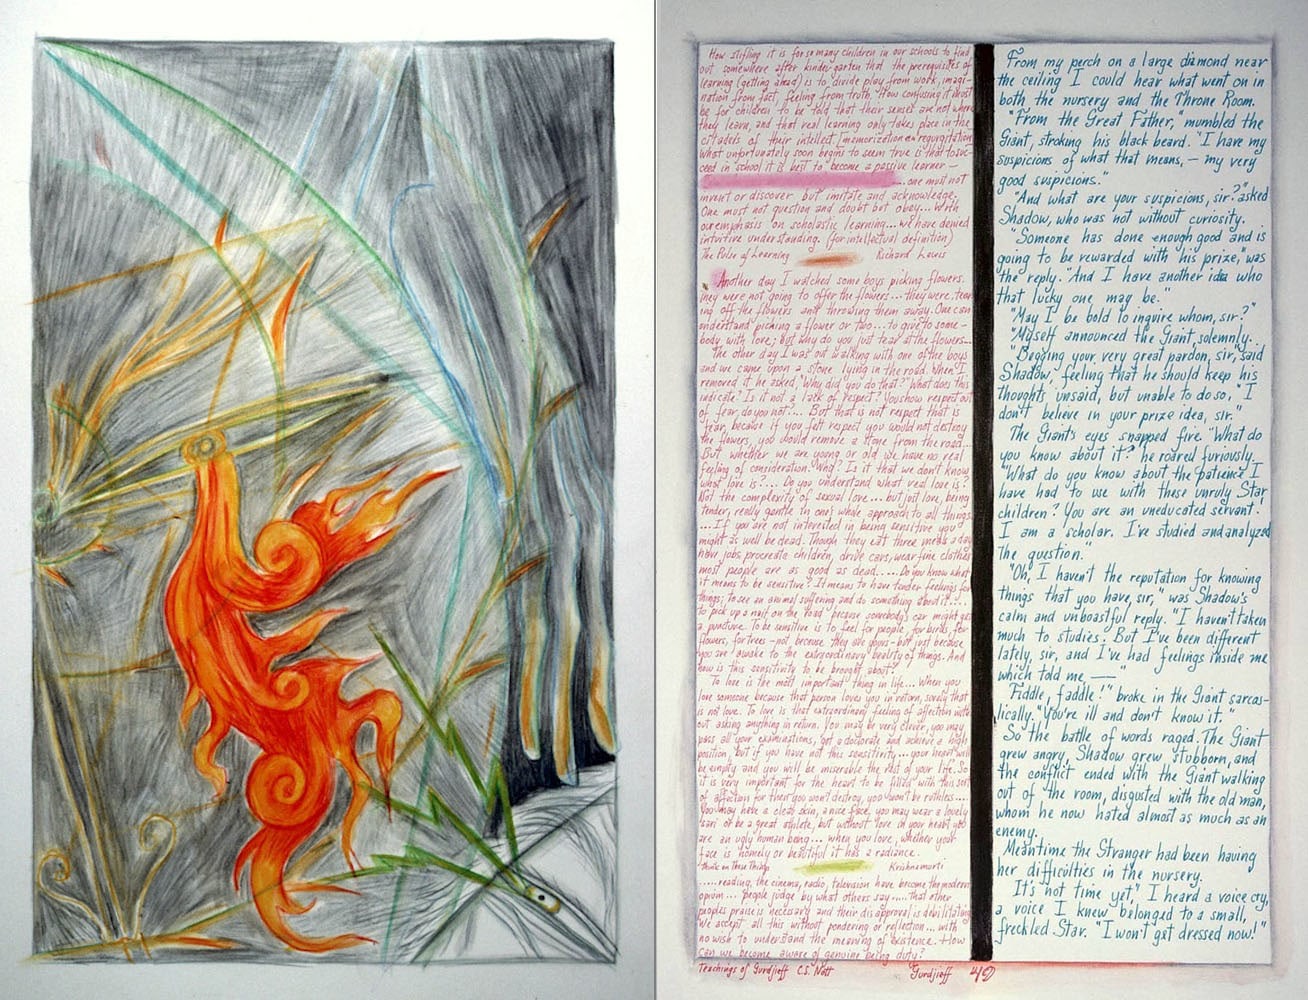 How stifling it is for so many children in our schools to find
out somewhere after kindergarten that the prerequisites of
learning (getting ahead) is to divide play from work, imagi-
nation from fact, feeling from truth. How confusing it must
be for children to be told that their senses are not where
they learn, and that real learning only takes place in the
citadels of their intellect. (memorization en regurgitation
What unfortunately soon begins to seem true is that to suc-
ceed in school it is best to become a passive learner —
...one must not
invent or discover but imitate and acknowledge.
One must not question and doubt but obey... With
our emphasis on scholastic learning... we have denied
intuitive understanding. (for intellectual definition)
The Pulse of Learning Richard Lewis
Another day I watched some boys picking flowers.
They were not going to offer the flowers... they were tear-
ing off the flowers and throwing them away. One can
understand picking a flower or two... to give to some-
body with love; But why do you just tear at the flowers...
The other day I was out walking with one of the boys
and we came upon a stone lying in the road. When I
removed it he asked, "Why did you do that?" What does this
indicate? Is it not a lack of respect? You show respect out
of fear, do you not?... But that is not respect that is
fear, because if you felt respect you would not destroy
the flowers, you would remove a stone from the road...
But whether we are young or old we have no real
feeling of consideration. Why? Is it that we don't know
what love is?... Do you understand what real love is?
Not the complexity of sexual love... but just love, being
tender, really gentle in one's whole approach to all things.
....If you are not interested in being sensitive you
might as well be dead. Though they eat three meals a day
have jobs, procreate children, drive cars, wear fine clothes
most people are as good as dead..... Do you know what
it means to be sensitive? It means to have tender feelings for
things; to see an animal suffering and do something about it....
to pick up a nail on the road because somebody's car might get
a puncture. To be sensitive is to feel for people, for birds, for
flowers, for trees - not because they are yours - but just because
you are awake to the extraordinary beauty of things. And
how is this sensitivity to be brought about?
To love is the most important thing in life... When you
love someone because that person loves you in return, surely that
is not love. To love is that extraordinary feeling of affection with-
out asking anything in return. You may be very clever, you may
pass all your examinations, get a doctorate and achieve a high
position, but if you have not this sensitivity... your heart will
be empty and you will be miserable the rest of your life. So
it is very important for the heart to be filled with this sense
of affection for then you won't destroy, you won't be ruthless....
You may have a clear skin, a nice face, you may wear a lovely
sari or be a great athlete, but without love in your heart you
are an ugly human being... when you love, whether your
face is homely or beautiful it has a radiance.
Think on These Things Krishnamurti
.....reading, the cinema, radio, television have become the modern
opium... People judge by what others say..... that other
peoples praise is necessary and their disapproval is debilitating
We accept all this without pondering or reflection... with
no wish to understand the meaning of existence. How
can we become aware of genuine being duty?
Teachings of Gurdjieff C.S. Nott Gurdjieff 42
From my perch on a large diamond near
the ceiling I could hear what went on in
both the nursery and the Throne Room.
"From the Great Father," mumbled the
Giant, stroking his black beard. "I have my
suspicions of what that means, — my very
good suspicions."
"And what are your suspicions, sir?" asked
Shadow, who was not without curiosity.
"Someone has done enough good and is
going to be rewarded with his prize," was
the reply. "And I have another idea who
that lucky one may be."
"May I be bold to inquire whom, sir?"
"Myself announced the Giant solemnly.
"Begging your very great pardon, sir," said
Shadow, feeling that he should keep his
thoughts unsaid, but unable to do so, "I
don't believe in your prize idea, sir."
The Giant's eyes snapped fire. "What do
you know about it?" he roared furiously.
"What do you know about the patience I
have had to use with these unruly Star
children? You are an uneducated servant.
I am a scholar. I've studied and analyzed
the question."
"Oh, I haven't the reputation for knowing
things that you have, sir," was Shadow's
calm and unboastful reply. "I haven't taken
much to studies. But I've been different
lately, sir, and I've had feelings inside me
which told me ——
"Fiddle, faddle!" broke in the Giant sarcas-
tically. "You're ill and don't know it."
So the battle of words raged. The Giant
grew angry, Shadow grew stubborn, and
the conflict ended with the Giant walking
out of the room, disgusted with the old man,
whom he now hated almost as much as an
enemy.
Meantime the Stranger had been having
her difficulties in the nursery.
"It's not time yet," I heard a voice cry,
a voice I knew belonged to a small,
freckled Star. "I won't get dressed now!"